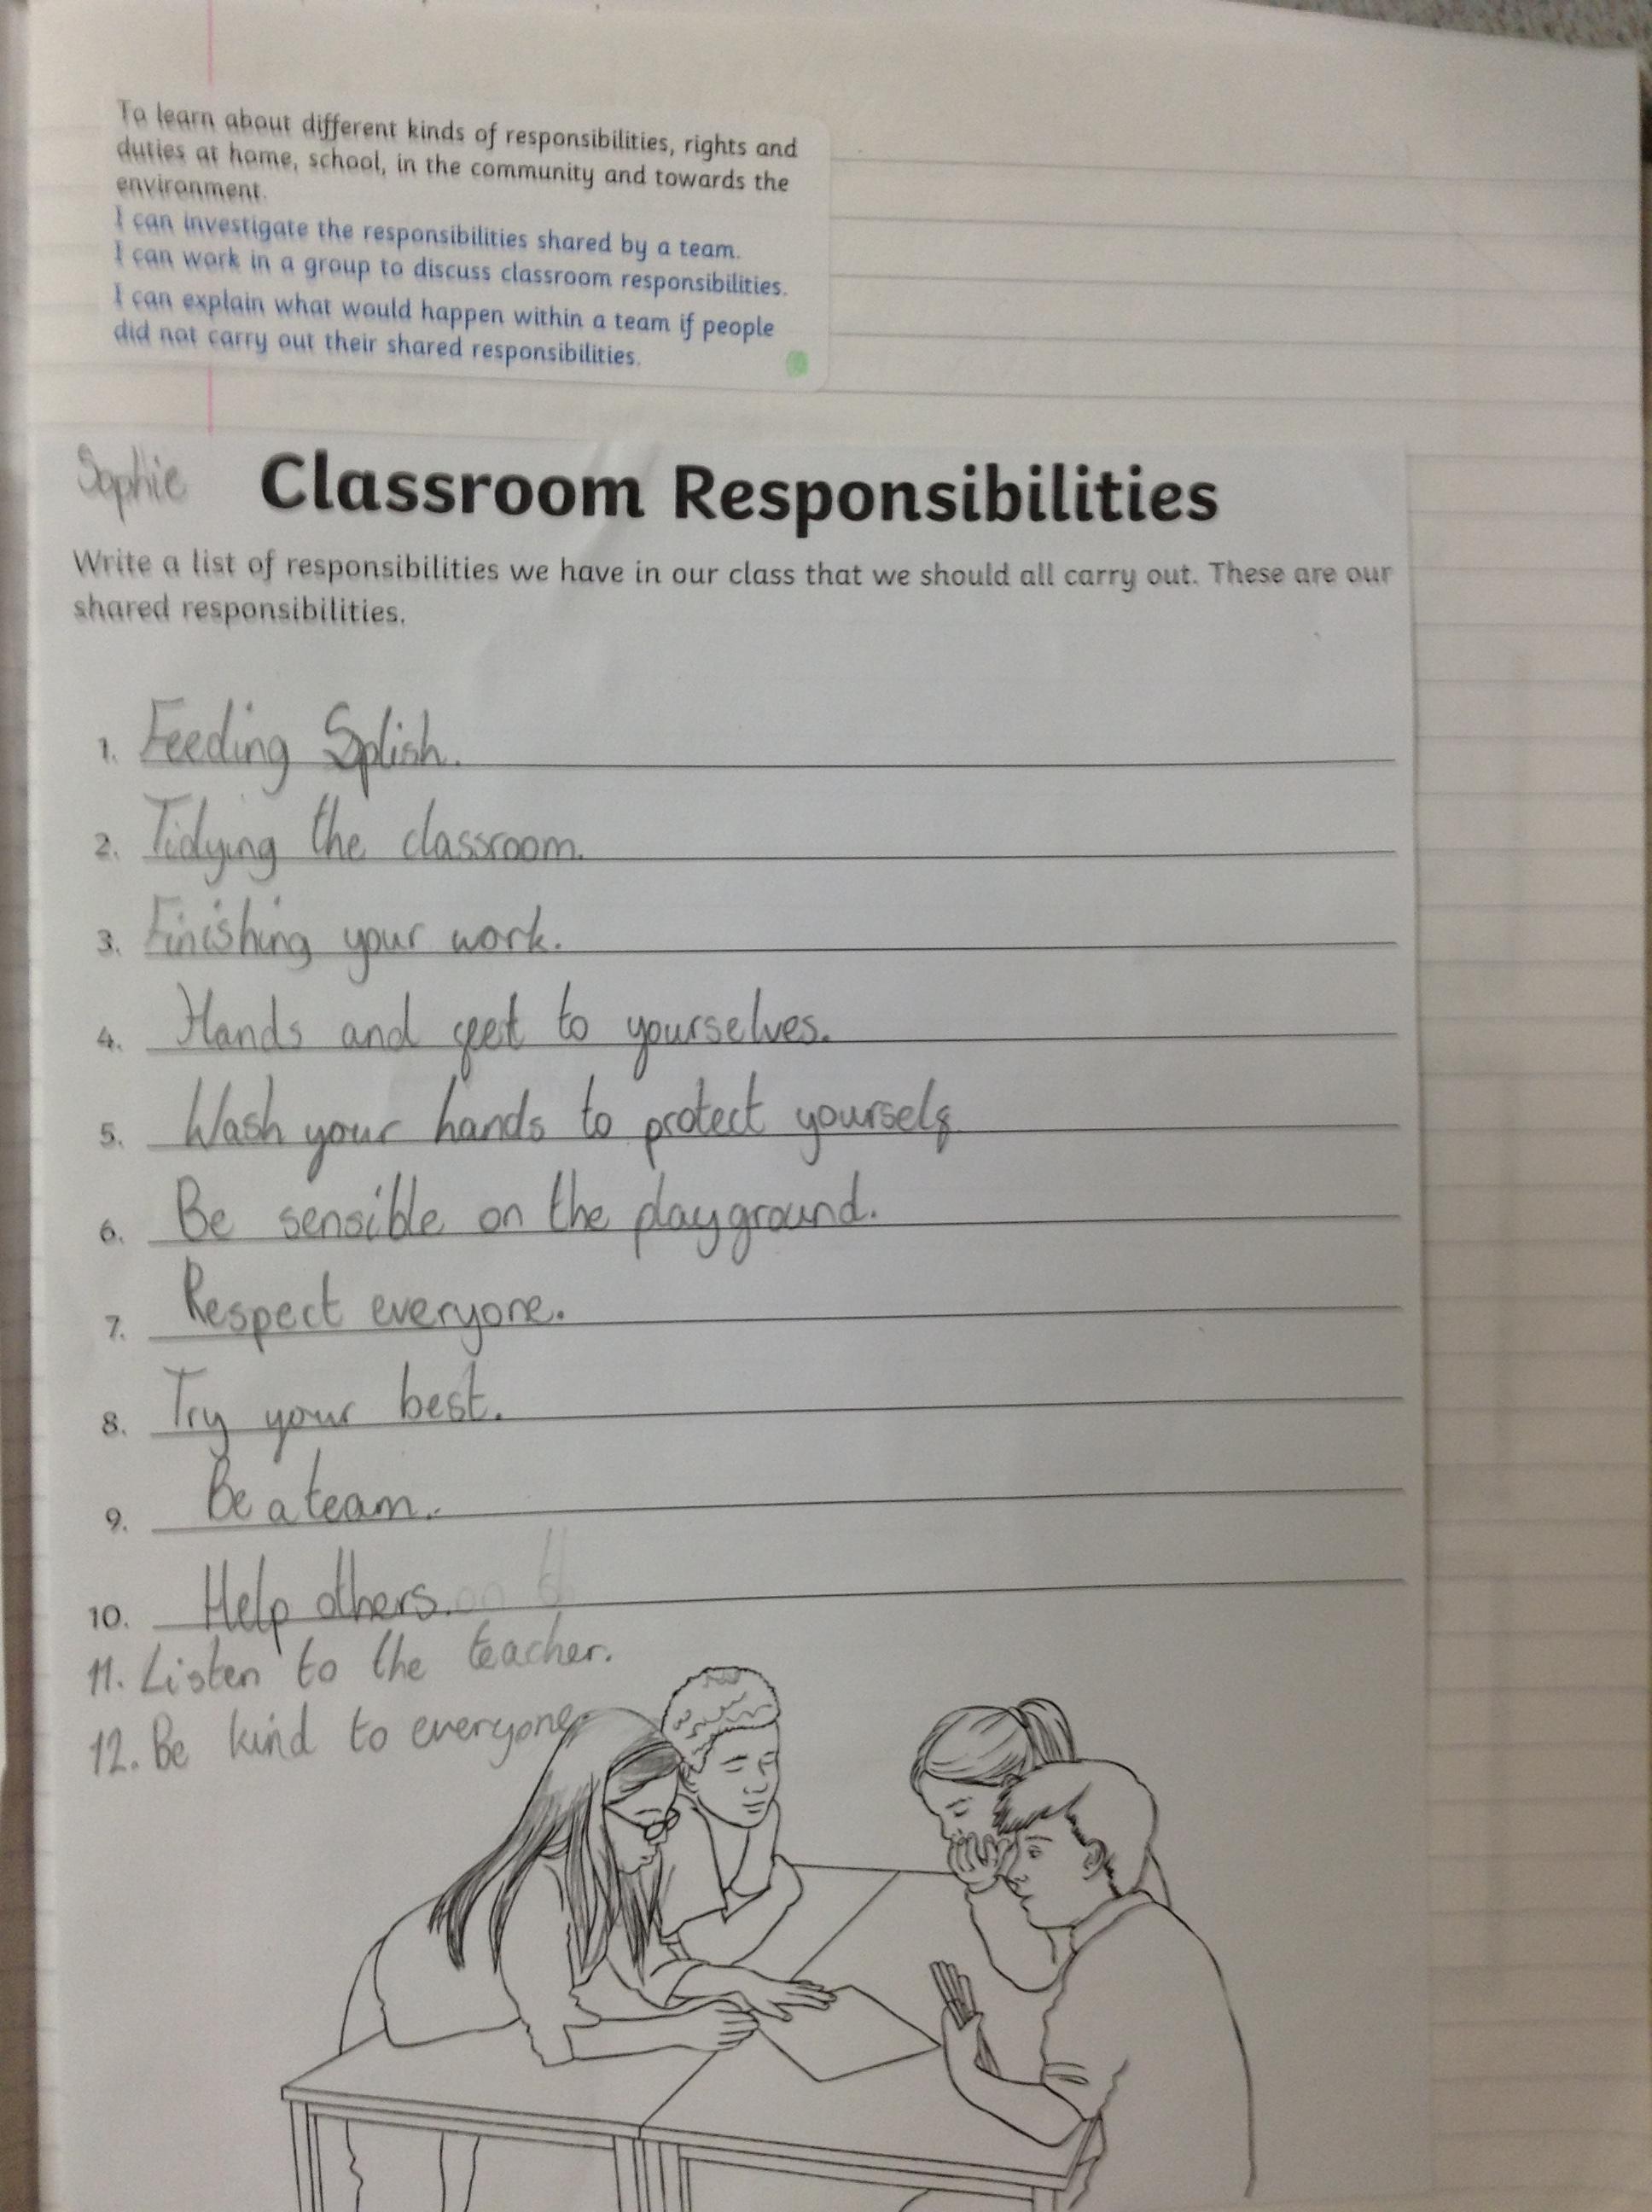 To learn about different kinds of responsibilities, rights and
duties at home, school, in the community and towards the
environment.
I can investigate the responsibilities shared by a team.
I can work in a group to discuss classroom responsibilities.
I can explain what would happen within a team if people
did not carry out their shared responsibilities.
Sophie
Classroom Responsibilities
Write a list of responsibilities we have in our class that we should all carry out. These are our
shared responsibilities.
1. Feeding Splish.
2. Tidying the classroom.
3. Finishing your work.
4. Hands and feet to yourselves.
5. Wash your hands to protect yourself
6. Be sensible on the playground.
7. Respect everyone.
8. Try your best.
9. Be a team.
10. Help others.
11. Listen to the teacher.
12. Be kind to everyone.